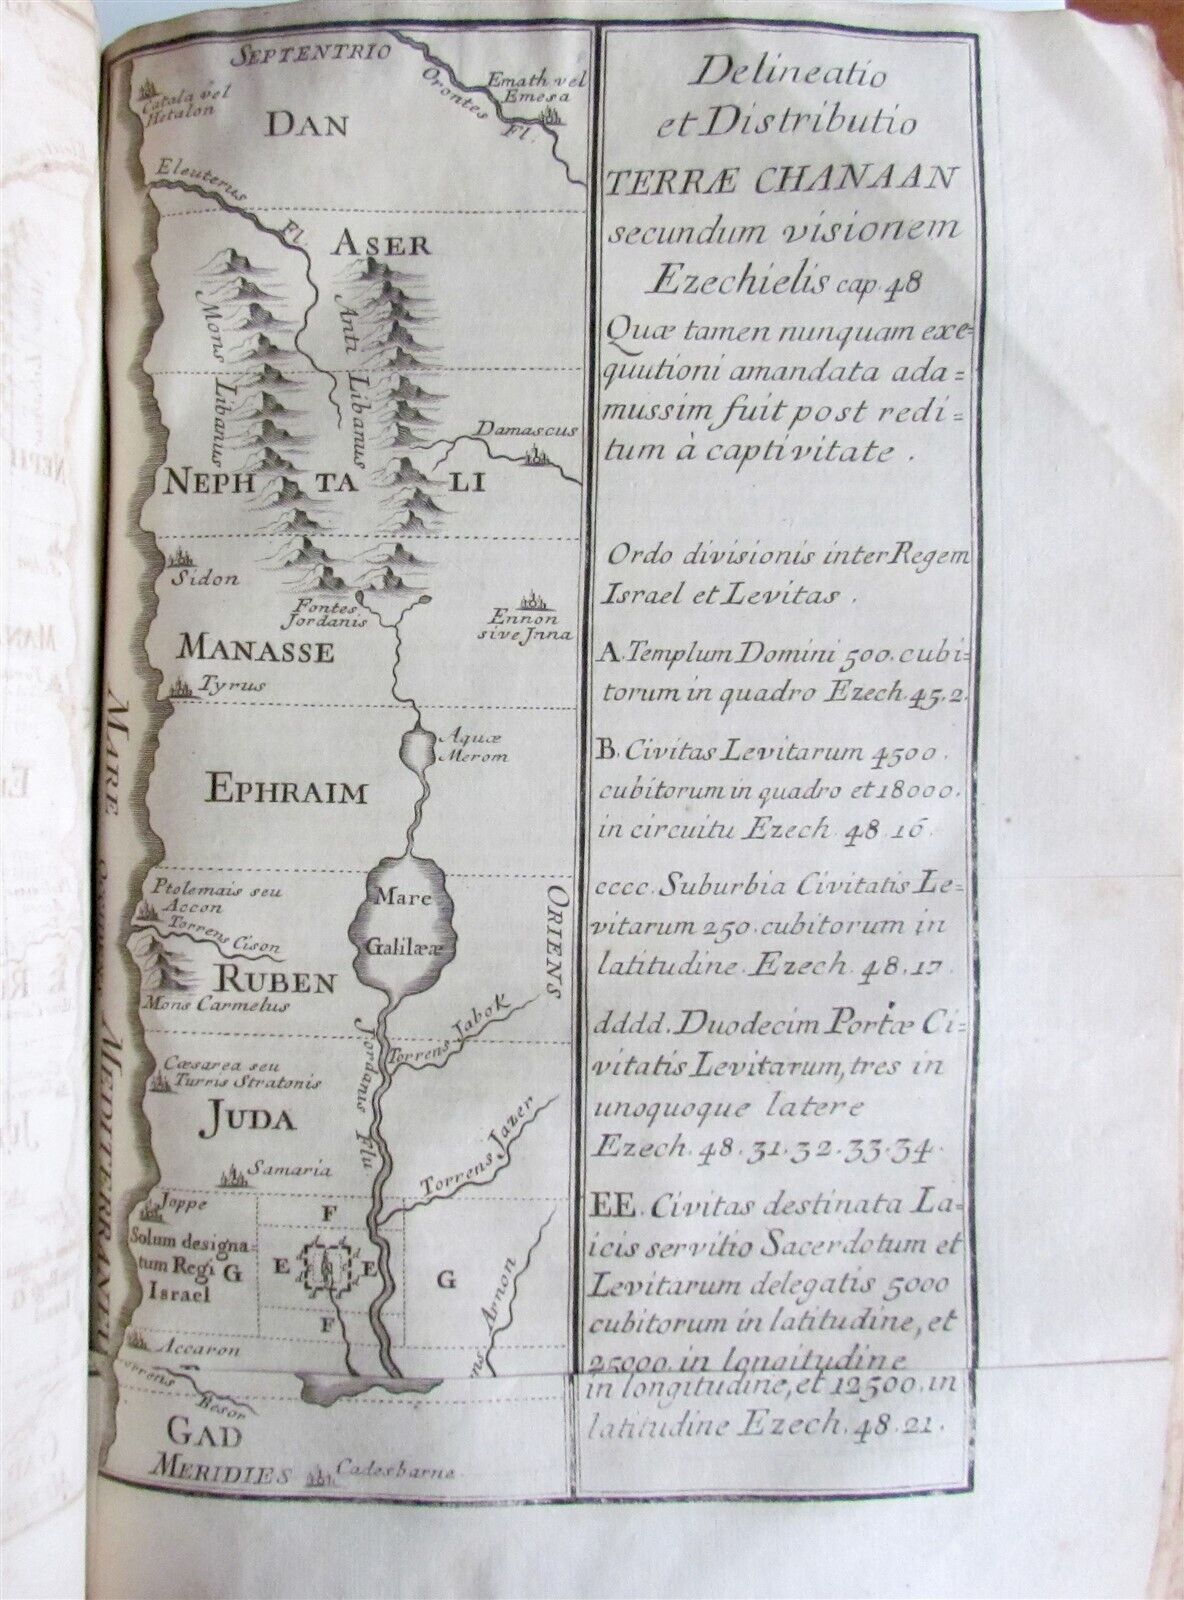 SEPTENTRIO
Catala vel
Hetalon
DAN
Orontes Fl.
Emath vel
Emesa
Eleuterus Fl.
ASER
Mons Libanus
Anti Libanus
Damascus
NEPHTALI
Sidon
Fontes
Jordanis
Ennon
sive Jnna
MANASSE
Tyrus
Aquæ
Merom
EPHRAIM
MARE
MEDITERRANEU
Ptolemais seu
Accon
Torrens Cison
Mare
Galilææ
ORIENS
RUBEN
Mons Carmelus
Jordanis Flu
Torrens Jabok
Cæsarea seu
Turris Stratonis
JUDA
Samaria
Torrens Jazer
Joppe
Solum designa=
tum Regi G
Israel
F
E E
F
G
d d d d
Arnon
Accaron
Besor
GAD
MERIDIES
Cadesbarne
Delineatio
et Distributio
TERRÆ CHANAAN
secundum visionem
Ezechielis cap. 48
Quæ tamen nunquam exe=
quutioni amandata ada=
mussim fuit post redi=
tum à captivitate.
Ordo divisionis inter Regem
Israel et Levitas.
A. Templum Domini 500. cubi=
torum in quadro Ezech. 45. 2.
B. Civitas Levitarum 4500.
cubitorum in quadro et 18000.
in circuitu Ezech. 48. 16.
cccc. Suburbia Civitatis Le=
vitarum 250. cubitorum in
latitudine. Ezech. 48. 17.
dddd. Duodecim Portæ Ci=
vitatis Levitarum, tres in
unoquoque latere
Ezech. 48. 31. 32. 33. 34.
EE. Civitas destinata La=
icis servitio Sacerdotum et
Levitarum delegatis 5000
cubitorum in latitudine, et
25000. in longitudine
in longitudine, et 12500. in
latitudine Ezech. 48. 21.